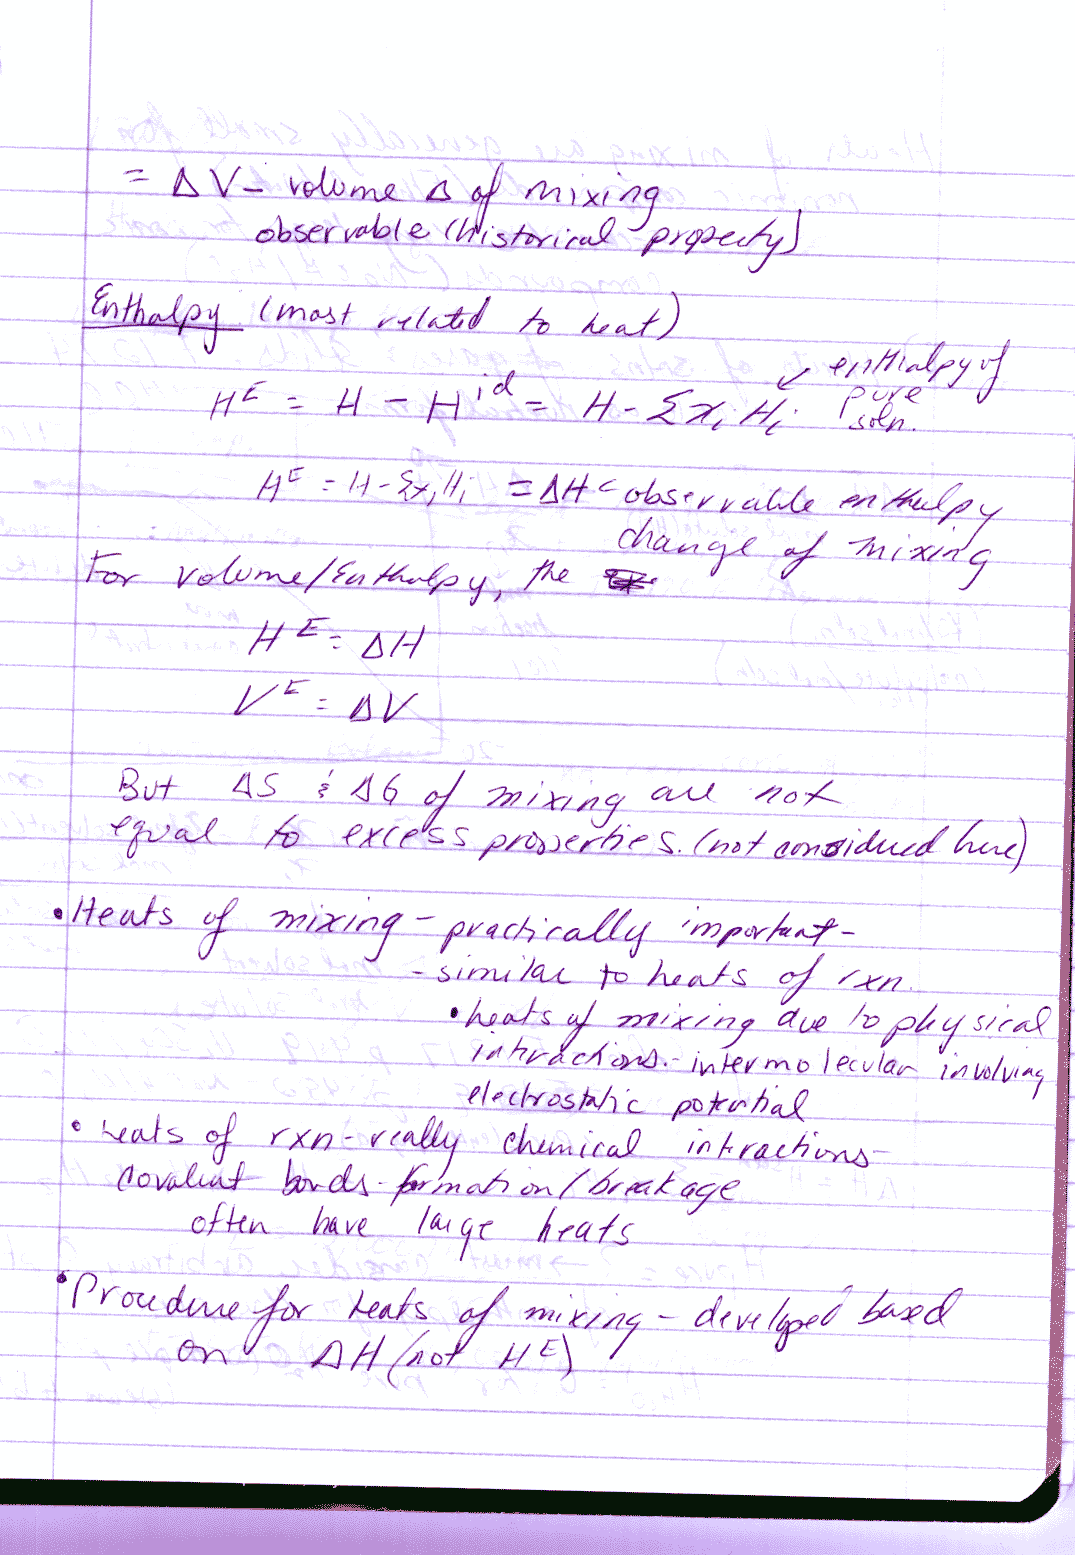 = ΔV - volume Δ of mixing
observable (historical property)
Enthalpy (most related to heat)
↙ enthalpy of
H^E = H - H^id = H - Σx_i H_i pure
soln.
H^E = H - Σx_i H_i = ΔH < observable enthalpy
change of mixing
For volume/Enthalpy, the
H^E = ΔH
V^E = ΔV
But ΔS & ΔG of mixing are not
equal to excess properties. (not considered here)
• Heats of mixing - practically important -
- similar to heats of rxn.
• heats of mixing due to physical
interactions. - intermolecular involving
electrostatic potential
• heats of rxn - really chemical interactions -
covalent bonds - formation/breakage
often have large heats
• Procedure for heats of mixing - developed based
on ΔH (not H^E)